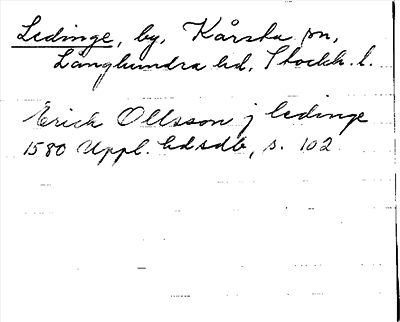 Ledinge, by, Kårsta sn,
Långhundra hd, Stockh. l.
Erick Ollsson j ledinge
1580 Uppl. hdsdb, s. 102